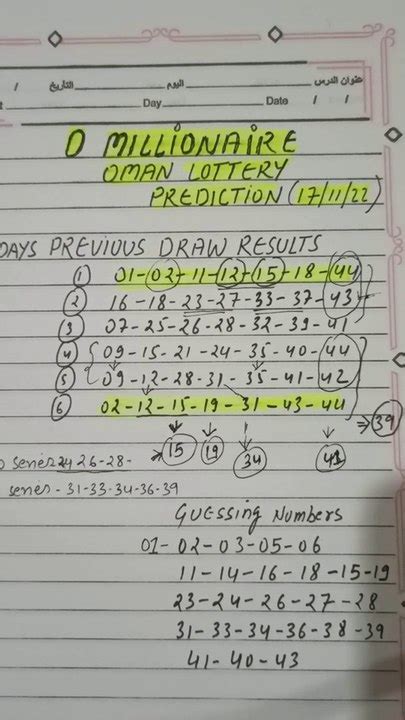 عنوان الدرس اليوم التاريخ /
Day Date / /
O MILLIONAIRE
OMAN LOTTERY
PREDICTION (17/11/22)
DAYS PREVIOUS DRAW RESULTS
① 01-02-11-12-15-18-44
② 16-18-23-27-33-37-43
③ 07-25-26-28-32-39-41
④ 09-15-21-24-35-40-44
⑤ 09-12-28-31-35-41-42
⑥ 02-12-15-19-31-43-44
39
15 19 34 41
series 24 26-28-
series - 31-33-34-36-39
Guessing Numbers
01-02-03-05-06
11-14-16-18-15-19
23-24-26-27-28
31-33-34-36-38-39
41-40-43